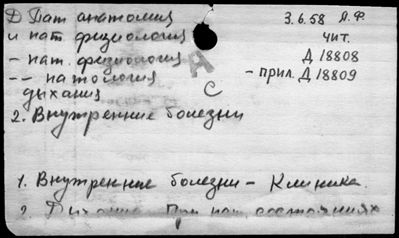 Д Пат анатомия 3.6.58 Л.Ф.
и пат. физиология чит.
- пат. физиология Д 18808
-- патология - прил. Д 18809
дыхания
С
2. Внутренние болезни
1. Внутренние болезни - Клиника.
2. Дыхание при пат. состояниях